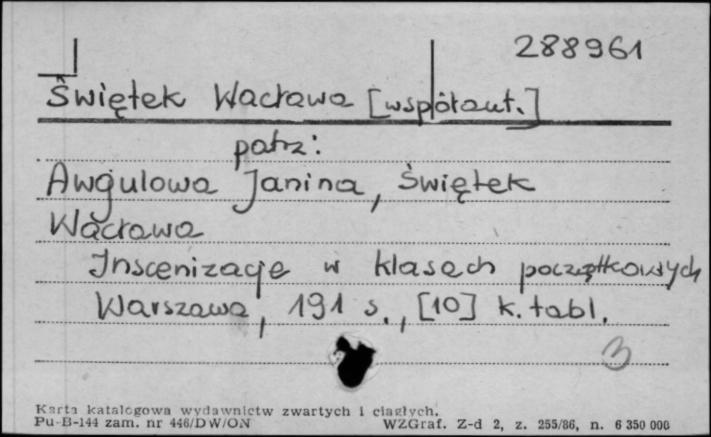 288961
Świętek Wacława [współaut.]
patrz:
Awgulowa Janina, Świętek
Wacława
Inscenizacje w klasach początkowych
Warszawa, 191 s., [10] k. tabl.
3
Karta katalogowa wydawnictw zwartych i ciągłych.
Pu-B-144 zam. nr 446/DW/ON WZGraf. Z-d 2, z. 255/86, n. 6 350 000